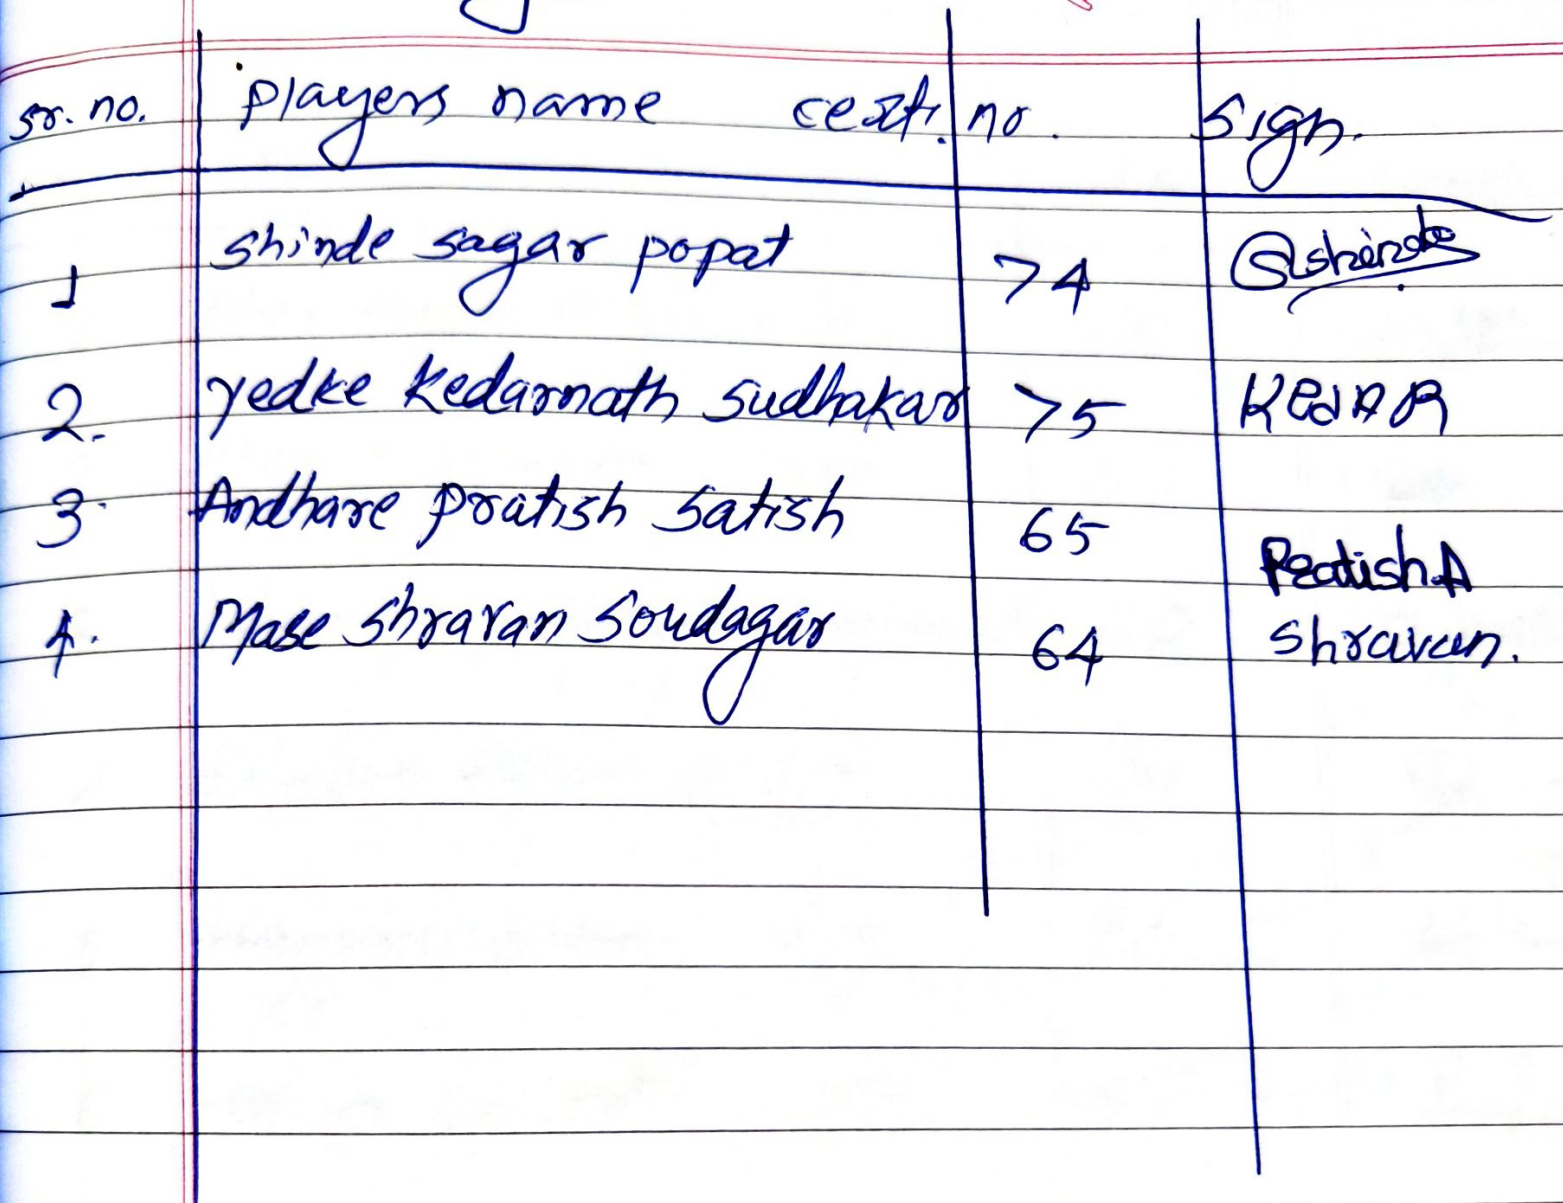 sr. no. players name certi. no. Sign.
1 Shinde sagar popat 74 Shinde
2. Yedke Kedarnath Sudhakar 75 KEdAR
3. Andhare Pratish Satish 65 Pratish.A
4. Mase Shravan Soudagar 64 Shravan.